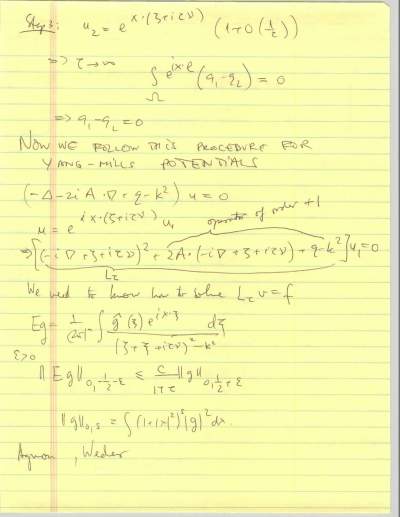 Step 3: u₂ = e^{x·(ζ+iτν)} (1+O(1/τ))
=> τ→∞ ∫_Ω e^{ix·ℓ}(q₁-q₂) = 0
=> q₁-q₂ = 0
NOW WE FOLLOW THIS PROCEDURE FOR
YANG-MILLS POTENTIALS
(-Δ-2iA·∇+q-k²) u = 0
u = e^{ix·(ζ+iτν)} u₁ operator of order +1
=> [(-i∇+ζ+iτν)² + 2A·(-i∇+ζ+iτν)+q-k²]u₁=0
L_τ
We need to know how to solve L_τ v=f
Eg = 1/(2π)ⁿ ∫ ĝ(ξ)e^{ix·ξ} / ((ξ+ζ+iτν)²-k²) dξ
ε>0
||Eg||_{0,-½-ε} ≤ C/(1+τ) ||g||_{0,½+ε}
||g||_{0,s} = ∫(1+|x|²)^s |g|² dx.
Agmon, Weder